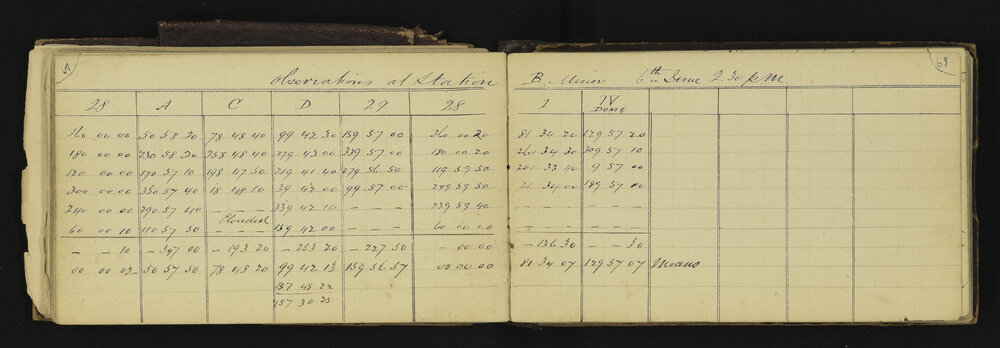 Observations at Station B Minor 6th June 2.30 p.m. 68
28 A C D 29 28 I IV
DOME
360 00 00 50 58 20 78 48 40 99 42 30 159 57 00 360 00 20 81 34 20 129 57 20
180 00 00 230 58 20 258 48 40 279 43 00 339 57 00 180 00 20 261 34 30 309 57 10
120 00 00 170 57 10 198 47 50 219 41 40 279 56 50 119 59 50 201 33 40 9 57 00
300 00 00 350 57 40 18 48 10 39 42 00 99 57 00 299 59 50 21 34 00 189 57 00
240 00 00 290 57 40 – – – 339 42 10 – – – 239 59 40 – – – – – – –
60 00 10 110 57 50 Clouded – – – 159 42 00 – – – 60 00 00 – – – – – –
– – 10 – 347 00 – 193 20 – 253 20 – 227 50 – 00 00 – 136 30 – – 30
00 00 02 50 57 50 78 48 20 99 42 13 159 56 57 00 00 00 81 34 07 129 57 07 Means
157 48 22
257 30 35